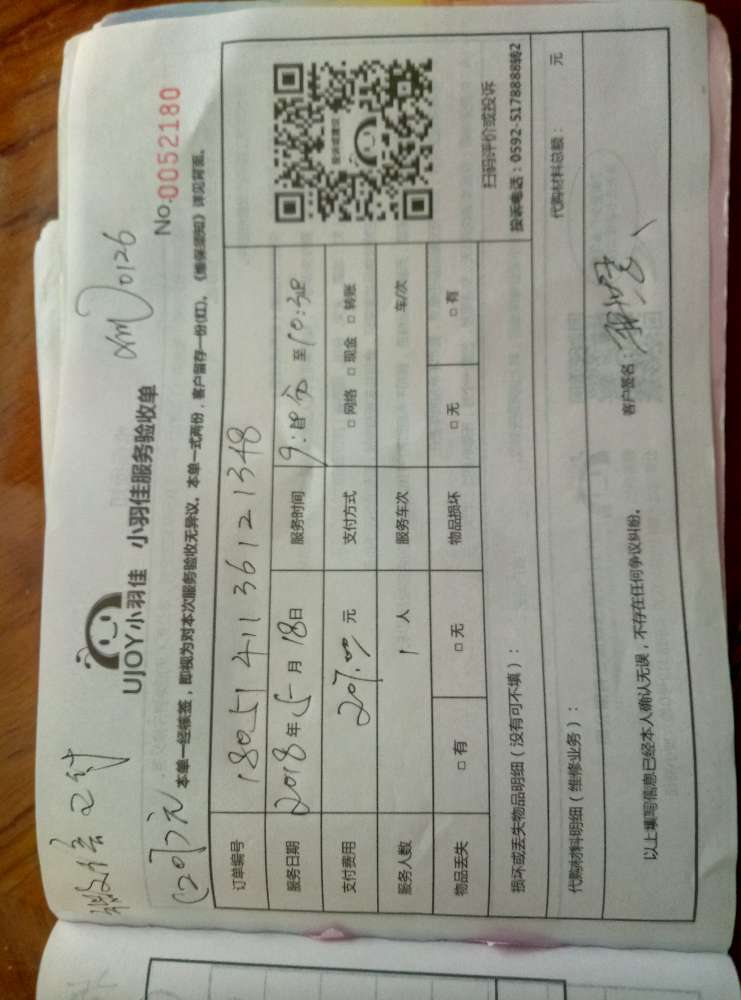 微信已付
(207元)
xm)0126
UJOY小羽佳 小羽佳服务验收单
No.0052180
本单一经核签，即视为对本次服务验收无异议。本单一式两份，客户留存一份(红)。《维保须知》详见背面。
订单编号 180514113612 1348
服务日期 2018年5月18日 服务时间 至10:30
支付费用 207.00元 支付方式 □ 网络 □ 现金 □ 转账
服务人数 1 人 服务车次 车/次
物品丢失 □ 有 □ 无 物品损坏 □ 无 □ 有
扫码评价或投诉
投诉电话：0592-5178888转2
损坏或丢失物品明细（没有可不填）：
代购材料明细（维修业务）： 代购材料总额： 元
以上填写信息已经本人确认无误，不存在任何争议纠纷。
客户签名：